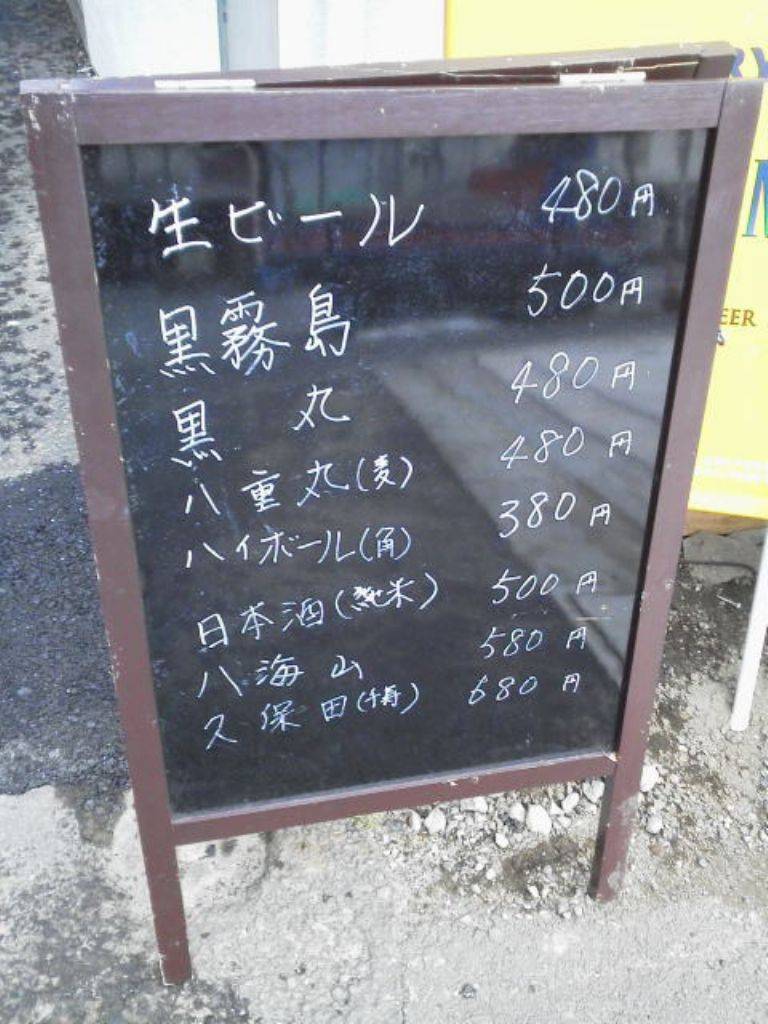 生ビール 480円
黒霧島 500円
黒丸 480円
八重丸(麦) 480円
ハイボール(角) 380円
日本酒(純米) 500円
八海山 580円
久保田(千寿) 680円
EER